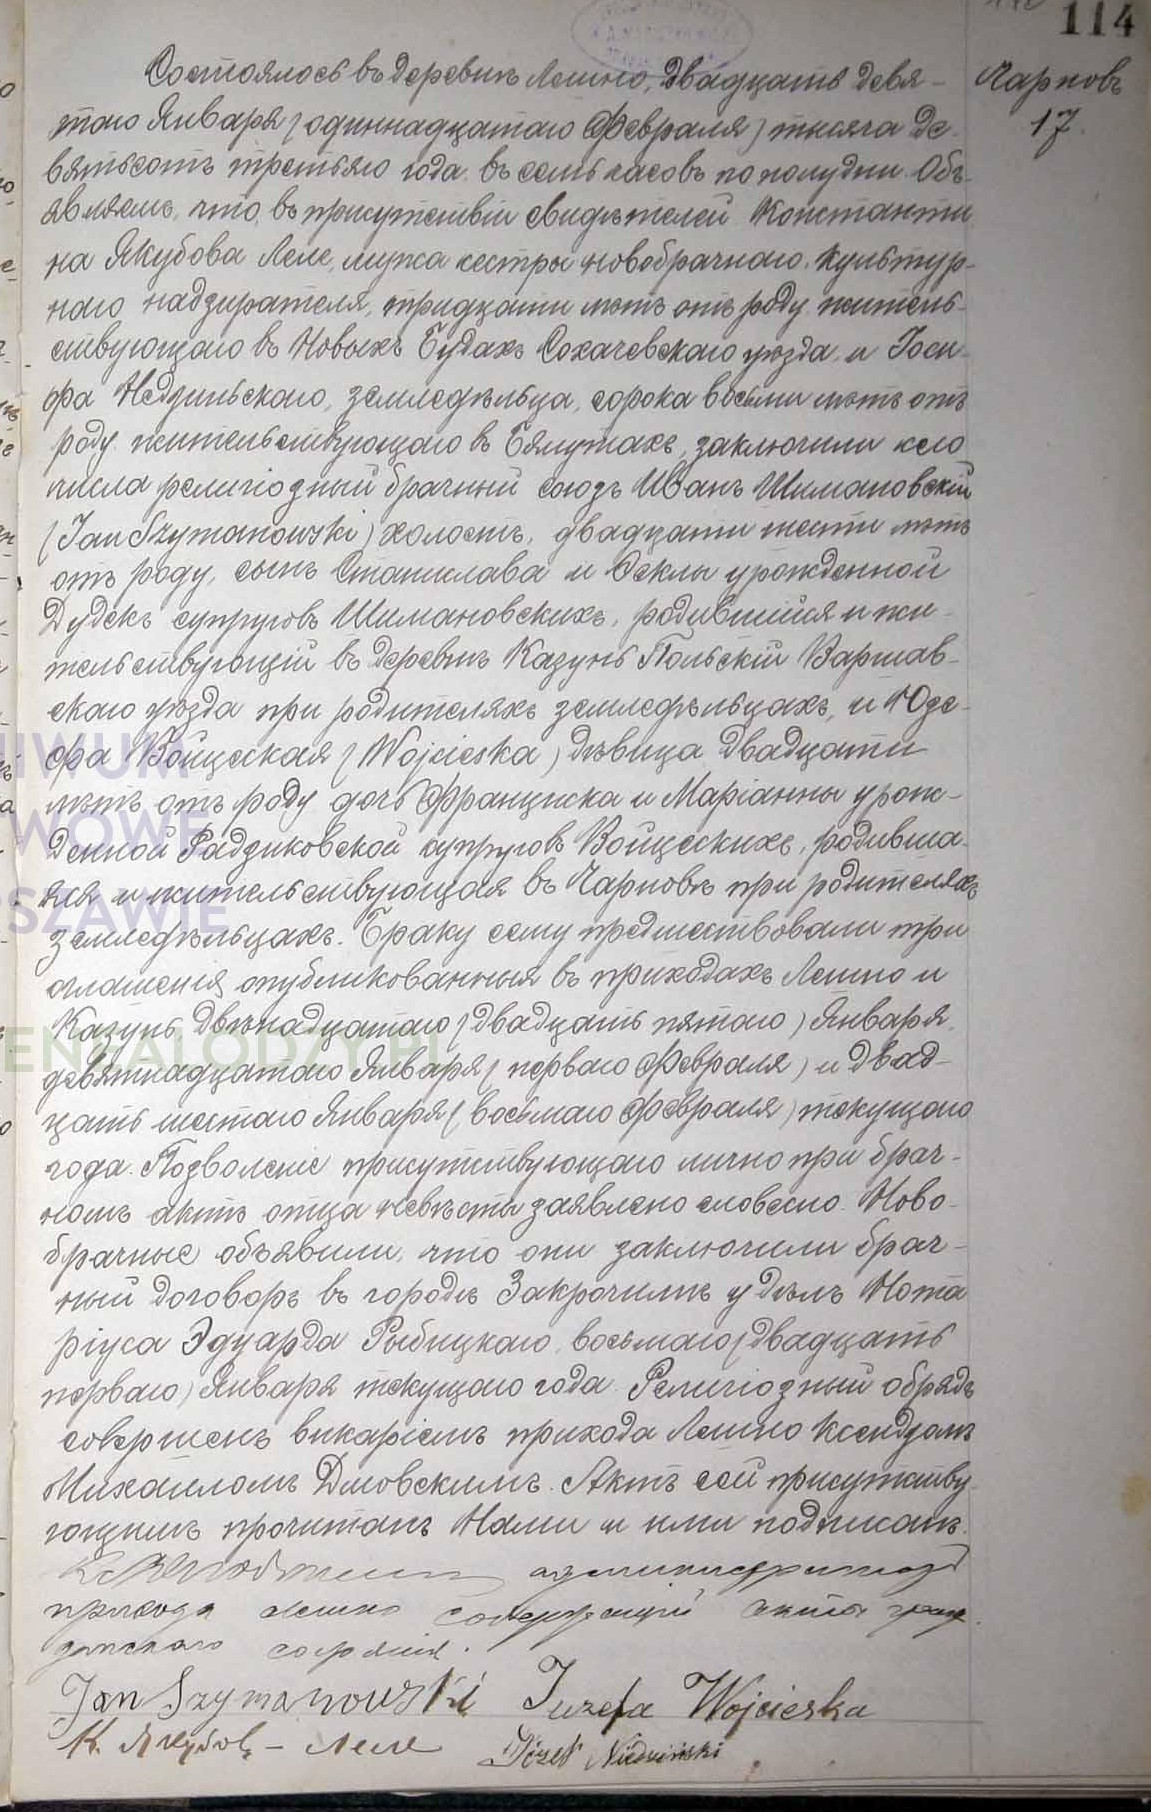 114
Чарновъ
17.
Состоялось въ деревнѣ Лешно, двадцать девя-
таго Января (одиннадцатаго Февраля) тысяча де-
вятьсотъ третьяго года въ семь часовъ по полудни. Объ-
являемъ, что въ присутствіи свидѣтелей Константи
на Якубова Леле, мужа сестры новобрачнаго, культур-
наго надзирателя, тридцати лѣтъ отъ роду житель-
ствующаго въ Новыхъ Будахъ Сохачевскаго уѣзда и Госи-
фа Недзиньскаго, земледѣльца, сорока восьми лѣтъ отъ
роду жительствующаго въ Бялутахъ, заключили сего
числа религіозный брачный союзъ Иванъ Шимановскій
(Jan Szymanowski) холостъ, двадцати шести лѣтъ
отъ роду, сынъ Станислава и Феклы урожденной
Дудекъ супруговъ Шимановскихъ, родившійся и жи-
тельствующій въ деревнѣ Казунь Польскій Варшав-
скаго уѣзда при родителяхъ земледѣльцахъ, и Юзе-
фа Войцеская (Wojcieska) дѣвица двадцати
лѣтъ отъ роду дочь Франциска и Маріанны урож-
денной Радзиковской супруговъ Войцескихъ, родивша-
яся и жительствующая въ Чарновѣ при родителяхъ
земледѣльцахъ. Браку сему предшествовали три
оглашенія опубликованныя въ приходахъ Лешно и
Казунь, двѣнадцатаго (двадцать пятаго) Января,
девятнадцатаго Января (перваго Февраля) и двад-
цать шестаго Января (восьмаго Февраля) текущаго
года. Позволеніе присутствующаго лично при брач-
номъ актѣ отца невѣсты заявлено словесно. Ново-
брачные объявили, что они заключили брач-
ный договоръ въ городѣ Закрочимѣ у дѣлъ Нота
ріуса Эдуарда Рыбицкаго, восьмаго (двадцать
перваго) Января текущаго года. Религіозный обрядъ
совершенъ викаріемъ прихода Лешно Ксендзомъ
Михаиломъ Дмовскимъ. Актъ сей присутству
ющимъ прочитанъ Нами и ими подписанъ.
администраторъ
прихода Лешно содержащій акты граж-
данскаго состоянія.
Jan Szymanowski Juzefa Wojcieska
К. Якубовъ - Леле Józef Niedziński